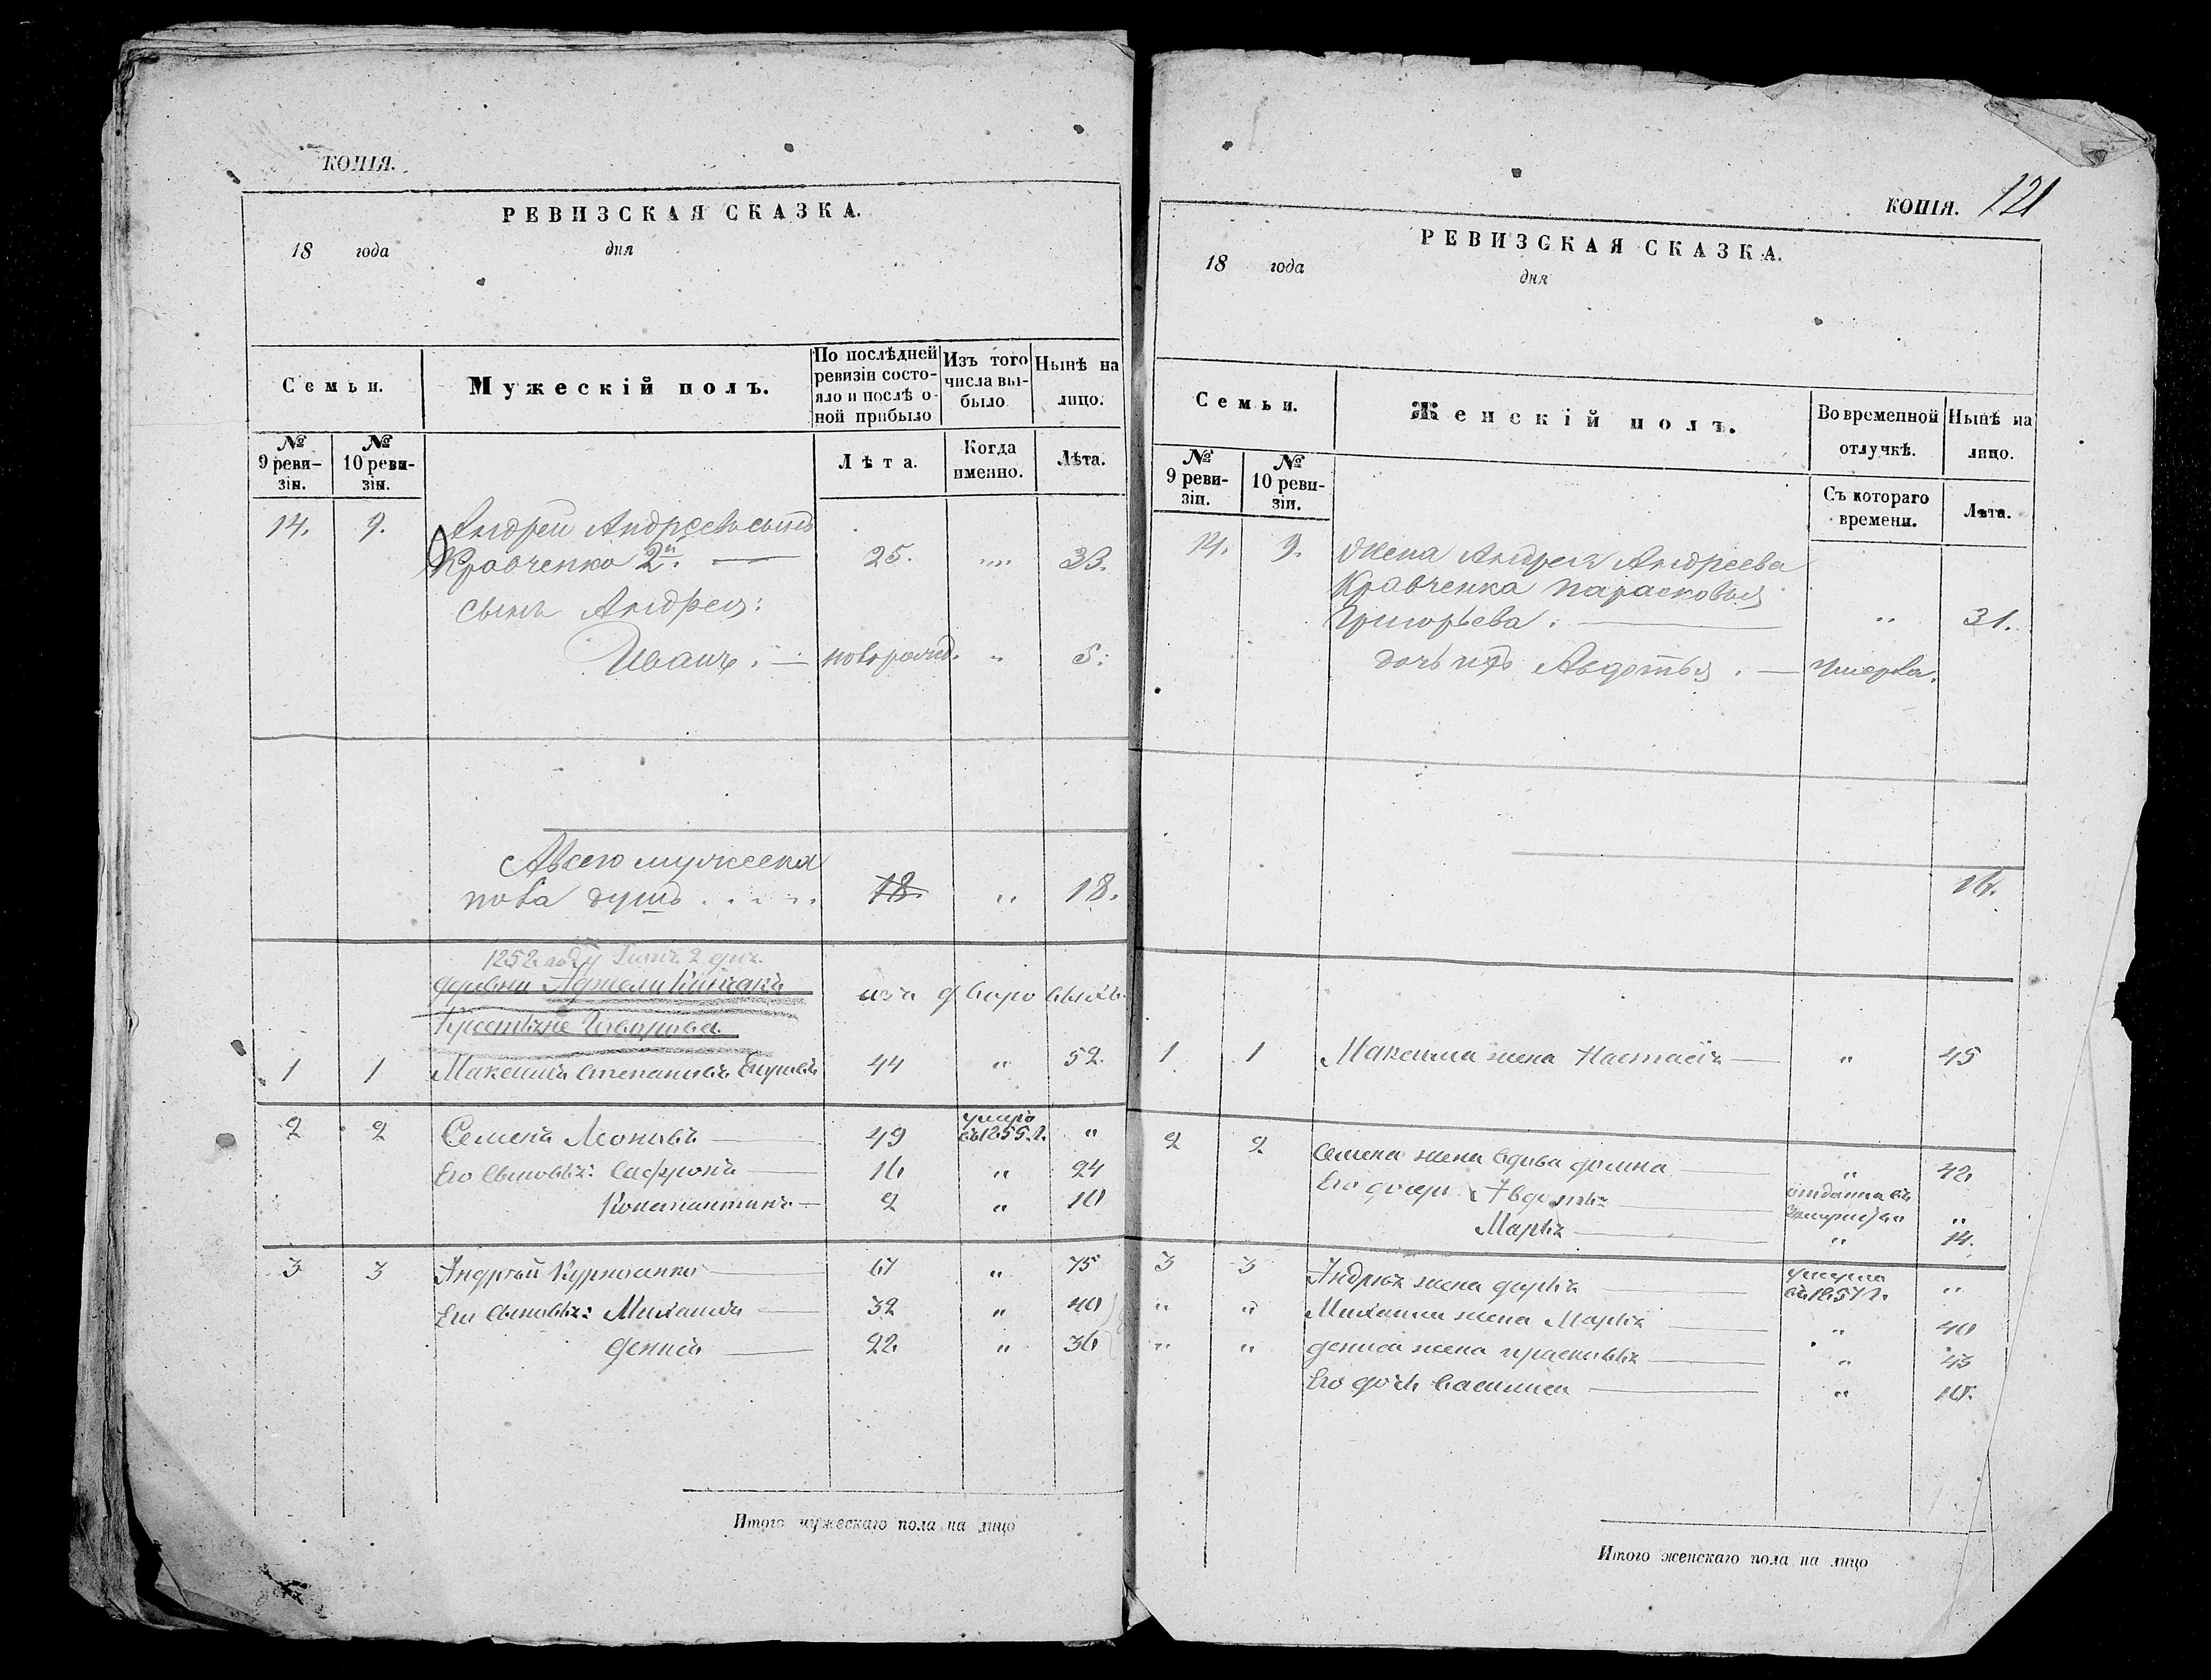 КОПІЯ.
РЕВИЗСКАЯ СКАЗКА.
18 года дня
Семьи. Мужескій полъ. По послѣдней ревизіи состояло и послѣ оной прибыло Изъ того числа выбыло Нынѣ на лицо.
№ 9 ревизіи. № 10 ревизіи. Лѣта. Когда именно. Лѣта.
14. 9. Андрей Андреевъ сынъ
Кравченко 2й. — 25. „„ 33.
сынъ Андрея:
Иванъ. — новорожд. „ 5:
Авсего мужеска
пола душъ . . . . . 18. „ 18.
деревни
Крестьяне
1 1 Максимъ Степановъ 44 „ 52.
2 2 Семенъ Леоновъ — 49 умеръ въ 1855.г. „
Его сыновья: Сафронъ — 16 „ 24
Константинъ — 2 „ 10
3 3 Андрей Курносенко — 67 „ 75
Его сыновья: Михаилъ — 32 „ 40
Денисъ — 22 „ 30
Итого мужескаго пола на лицо
КОПІЯ. 121
РЕВИЗСКАЯ СКАЗКА.
18 года дня
Семьи. Женскій полъ. Во временной отлучкѣ. Нынѣ на лицо.
№ 9 ревизіи. № 10 ревизіи. Съ котораго времени. Лѣта.
14. 9. Жена Андрея Андреева
Кравченка Парасковья
Григорьева. — „ 31.
дочь ихъ Авдотья. — умерла.
16.
1 1 Максима жена Настасія — „ 45
2 2 Семена жена вдова Домна — „ 42
Его дочери: Авдотья — отдана въ замужство „
Марья — „ 14.
3 3 Андрея жена Дарья — умерла въ 1857 г. „
„ „ Михаила жена Марья — „ 40
„ „ Дениса жена Прасковья — „ 43
Его дочь Василиса — „ 10.
Итого женскаго пола на лицо